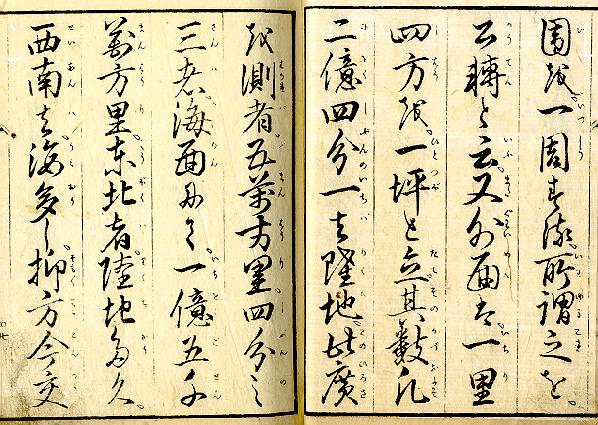 圍を一周する所謂之を
公轉と云又外面は一里
四方を一坪と立其數凡
二億四分一は陸地此廣
を測者五萬方里四分之
三者海面にして一億五千
萬方里東北者陸地多久
西南は海多し抑方今交